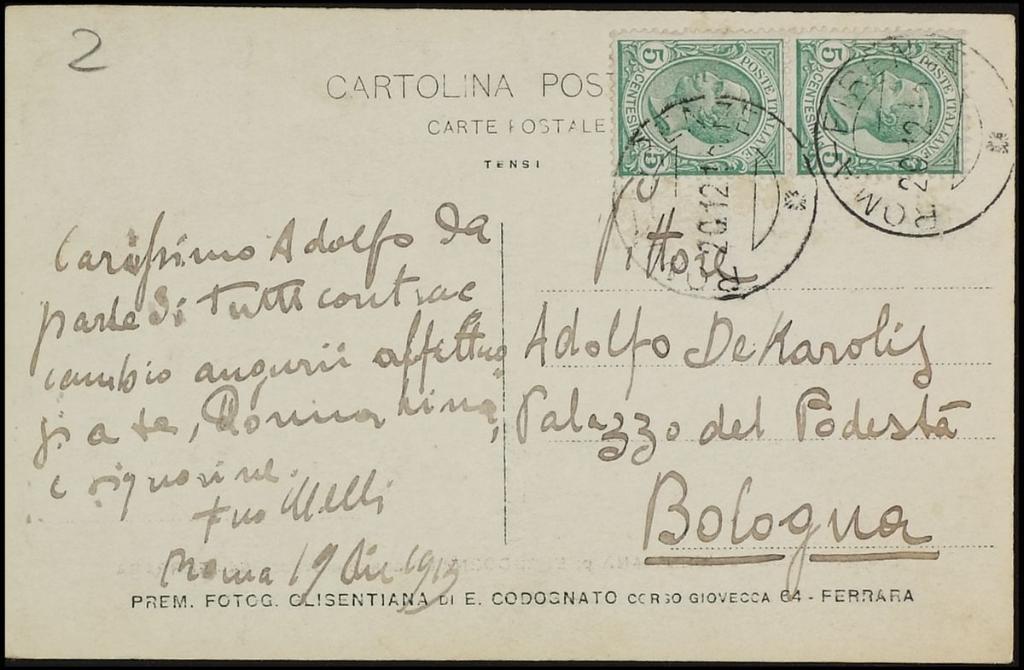 2
CARTOLINA POS
CARTE POSTALE
TENSI
POSTE ITALIANE
5 CENTESIMI 5
POSTE ITALIANE
5 CENTESIMI 5
ROMA
20.12.1
ROMA
20.12.1
Carissimo Adolfo da
parte di tutti contrac
cambio augurii affettuo
si a te, Donna Lina,
e signorine.
tuo Melli
Roma 19 Dic 1919
Pittore
Adolfo DeKarolis
Palazzo del Podestà
Bologna
PREM. FOTOG. GLISENTIANA DI E. CODOGNATO CORSO GIOVECCA 64 - FERRARA